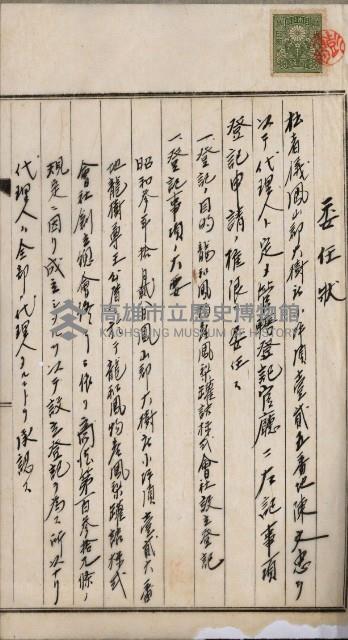 委任狀
拙者儀鳳山郡大樹庄小坪頂壹貳五番地陳文忠ヲ
以テ代理人ト定メ管轄登記官廳ニ左記事項
登記申請ノ權限ヲ委任ス
一、登記ノ目的 龍和鳳物產鳳梨罐詰株式會社設立登記
一、登記事項ノ大要
昭和參年拾月貳 日鳳山郡大樹庄小坪頂壹貳六番
地龍樹專王公 龍和鳳物產鳳梨罐詰株式
會社創立總會終了ニ依リ商法第百參拾九條ノ
規定ニ因リ成立シタルヲ以テ設立登記ヲ為ス所以ナリ
代理人ハ全部ノ代理人タルコトヲ承認ス
高雄市立歷史博物館
KAOHSIUNG MUSEUM OF HISTORY